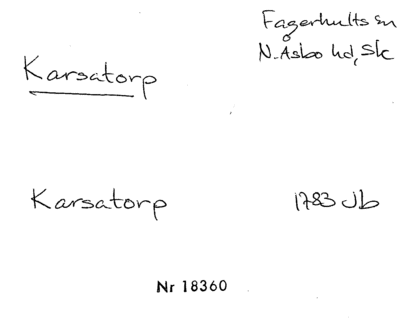 Fagerhults sn
N. Åsbo hd, Sk
Karsatorp
Karsatorp 1783 Jb
Nr 18360